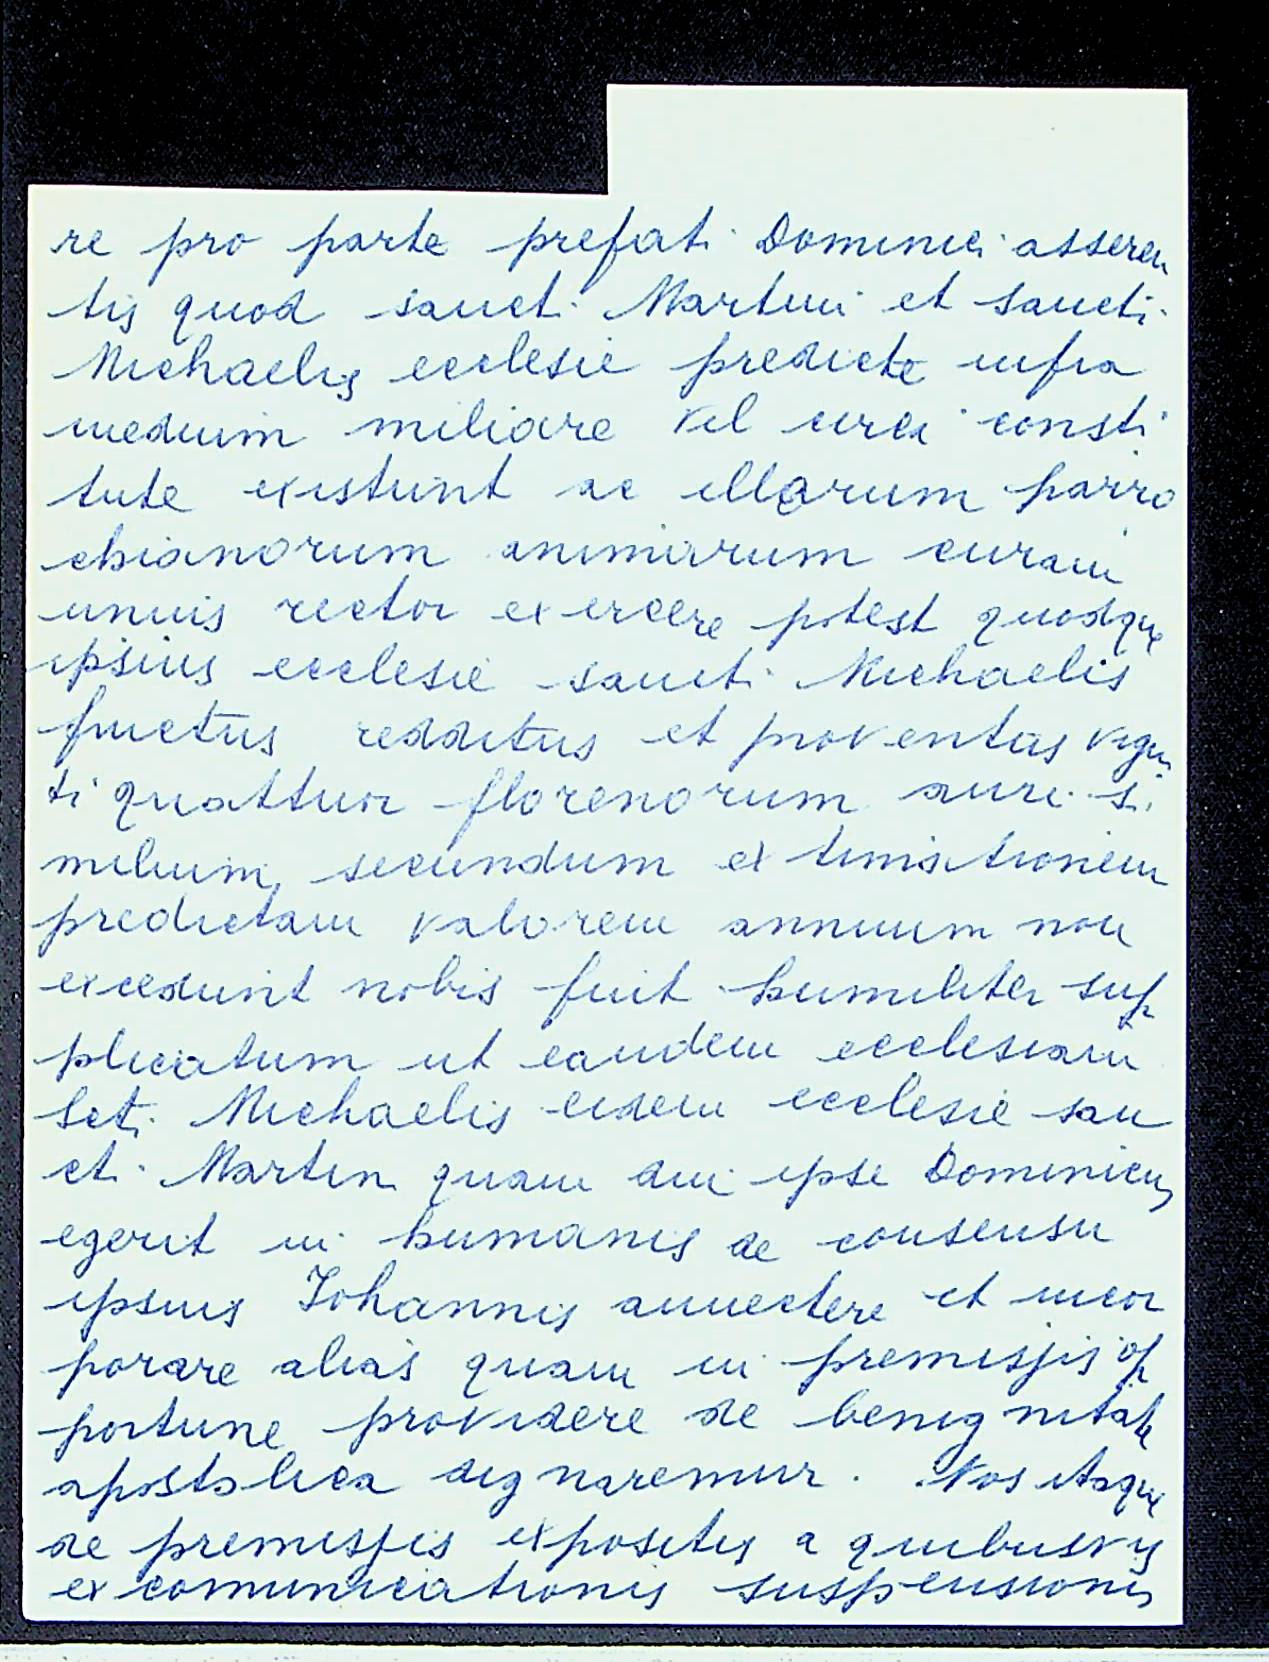 re pro parte prefati Dominici asseren
tis quod sancti Martini et sancti
Michaelis ecclesie predicte infra
medium miliare vel circa consti
tute existunt ac illarum parro
chianorum animarum curam
unius rector exercere potest quodque
ipsius ecclesie sancti Michaelis
fructus redditus et proventus vigin
ti quattuor florenorum auri si
milium, secundum extimationem
predictam valorem annuum non
excedunt nobis fuit humiliter sup
plicatum ut eandem ecclesiam
Scti Michaelis eidem ecclesie san
cti Martin quam diu ipse Dominicus
egerit in humanis de consensu
ipsius Johannis annectere et incor
porare alias quam in premissis op
portune providere de benignitate
apostolica dignaremur. Nos itaque
de premissis expositis a quibusvis
excomunicationis suspensionis